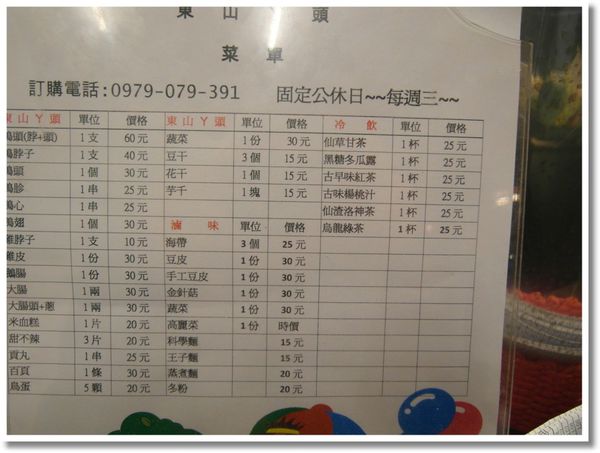 東山丫頭
菜單
訂購電話:0979-079-391 固定公休日~~每週三~~
東山丫頭 單位 價格 東山丫頭 單位 價格 冷飲 單位 價格
鴨頭(脖+頭) 1支 60元 蔬菜 1份 30元 仙草甘茶 1杯 25元
鴨脖子 1支 40元 豆干 3個 15元 黑糖冬瓜露 1杯 25元
鴨頭 1個 30元 花干 1個 15元 古早味紅茶 1杯 25元
鴨胗 1串 25元 芋千 1塊 15元 古味楊桃汁 1杯 25元
鴨心 1串 25元 仙渣洛神茶 1杯 25元
鴨翅 1個 30元 滷味 單位 價格 烏龍綠茶 1杯 25元
雞脖子 1支 10元 海帶 3個 25元
雞皮 1份 30元 豆皮 1份 30元
鵝腸 1份 30元 手工豆皮 1份 30元
大腸 1兩 30元 金針菇 1份 30元
大腸頭+蔥 1兩 30元 蔬菜 1份 30元
米血糕 1片 20元 高麗菜 1份 時價
甜不辣 3片 20元 科學麵 15元
貢丸 1串 25元 王子麵 15元
百頁 1條 30元 蒸煮麵 20元
鳥蛋 5顆 20元 冬粉 20元